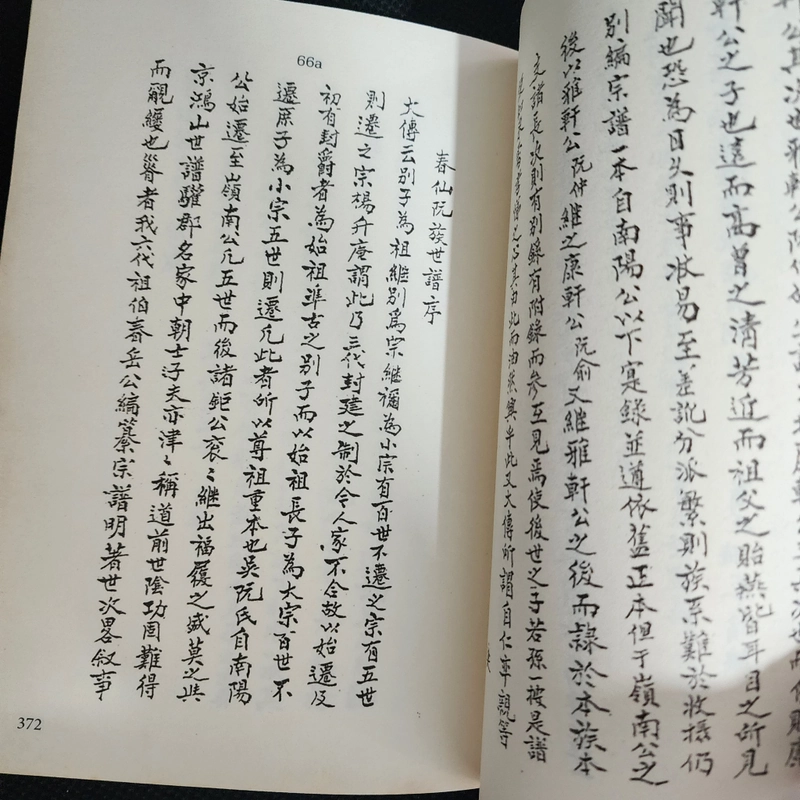 66a
春仙阮族世譜序
大傳云別子為祖継別為宗継禰為小宗有百世不遷之宗有五世
則遷之宗楊升庵謂此乃三代封建之制於今人家不合故以始遷及
初有封爵者為始祖準古之別子而以始祖長子為大宗百世不
遷庶子為小宗五世則遷凡此者所以尊祖重本也吳阮氏自南陽
公始遷至嶺南公凡五世而後諸鉅公袞〻継出福履之盛莫之與
京鴻山世譜驩郡名家中朝士子夫亦津〻稱道前世陰功固難得
而覼縷也昝者我六代祖伯春岳公編纂宗譜明著世次畧叙事
372
軒公其次也雅軒公
軒公之子也遠而高曾之清芳近而祖父之貽燕皆耳目之所見
聞也恐為日久則事狀易至差訛分派繁則族系難於收拾仍
別編宗譜一本自南陽公以下寔錄並遵依舊正本但于嶺南公之
後以雅軒公阮仲継之康軒公阮俞又継雅軒公之後而隷於本族本
支諸長次則有別錄有附錄而參互見焉使後世之子若孫一披是譜
此而油然興乎此又大傳所謂自仁率親等